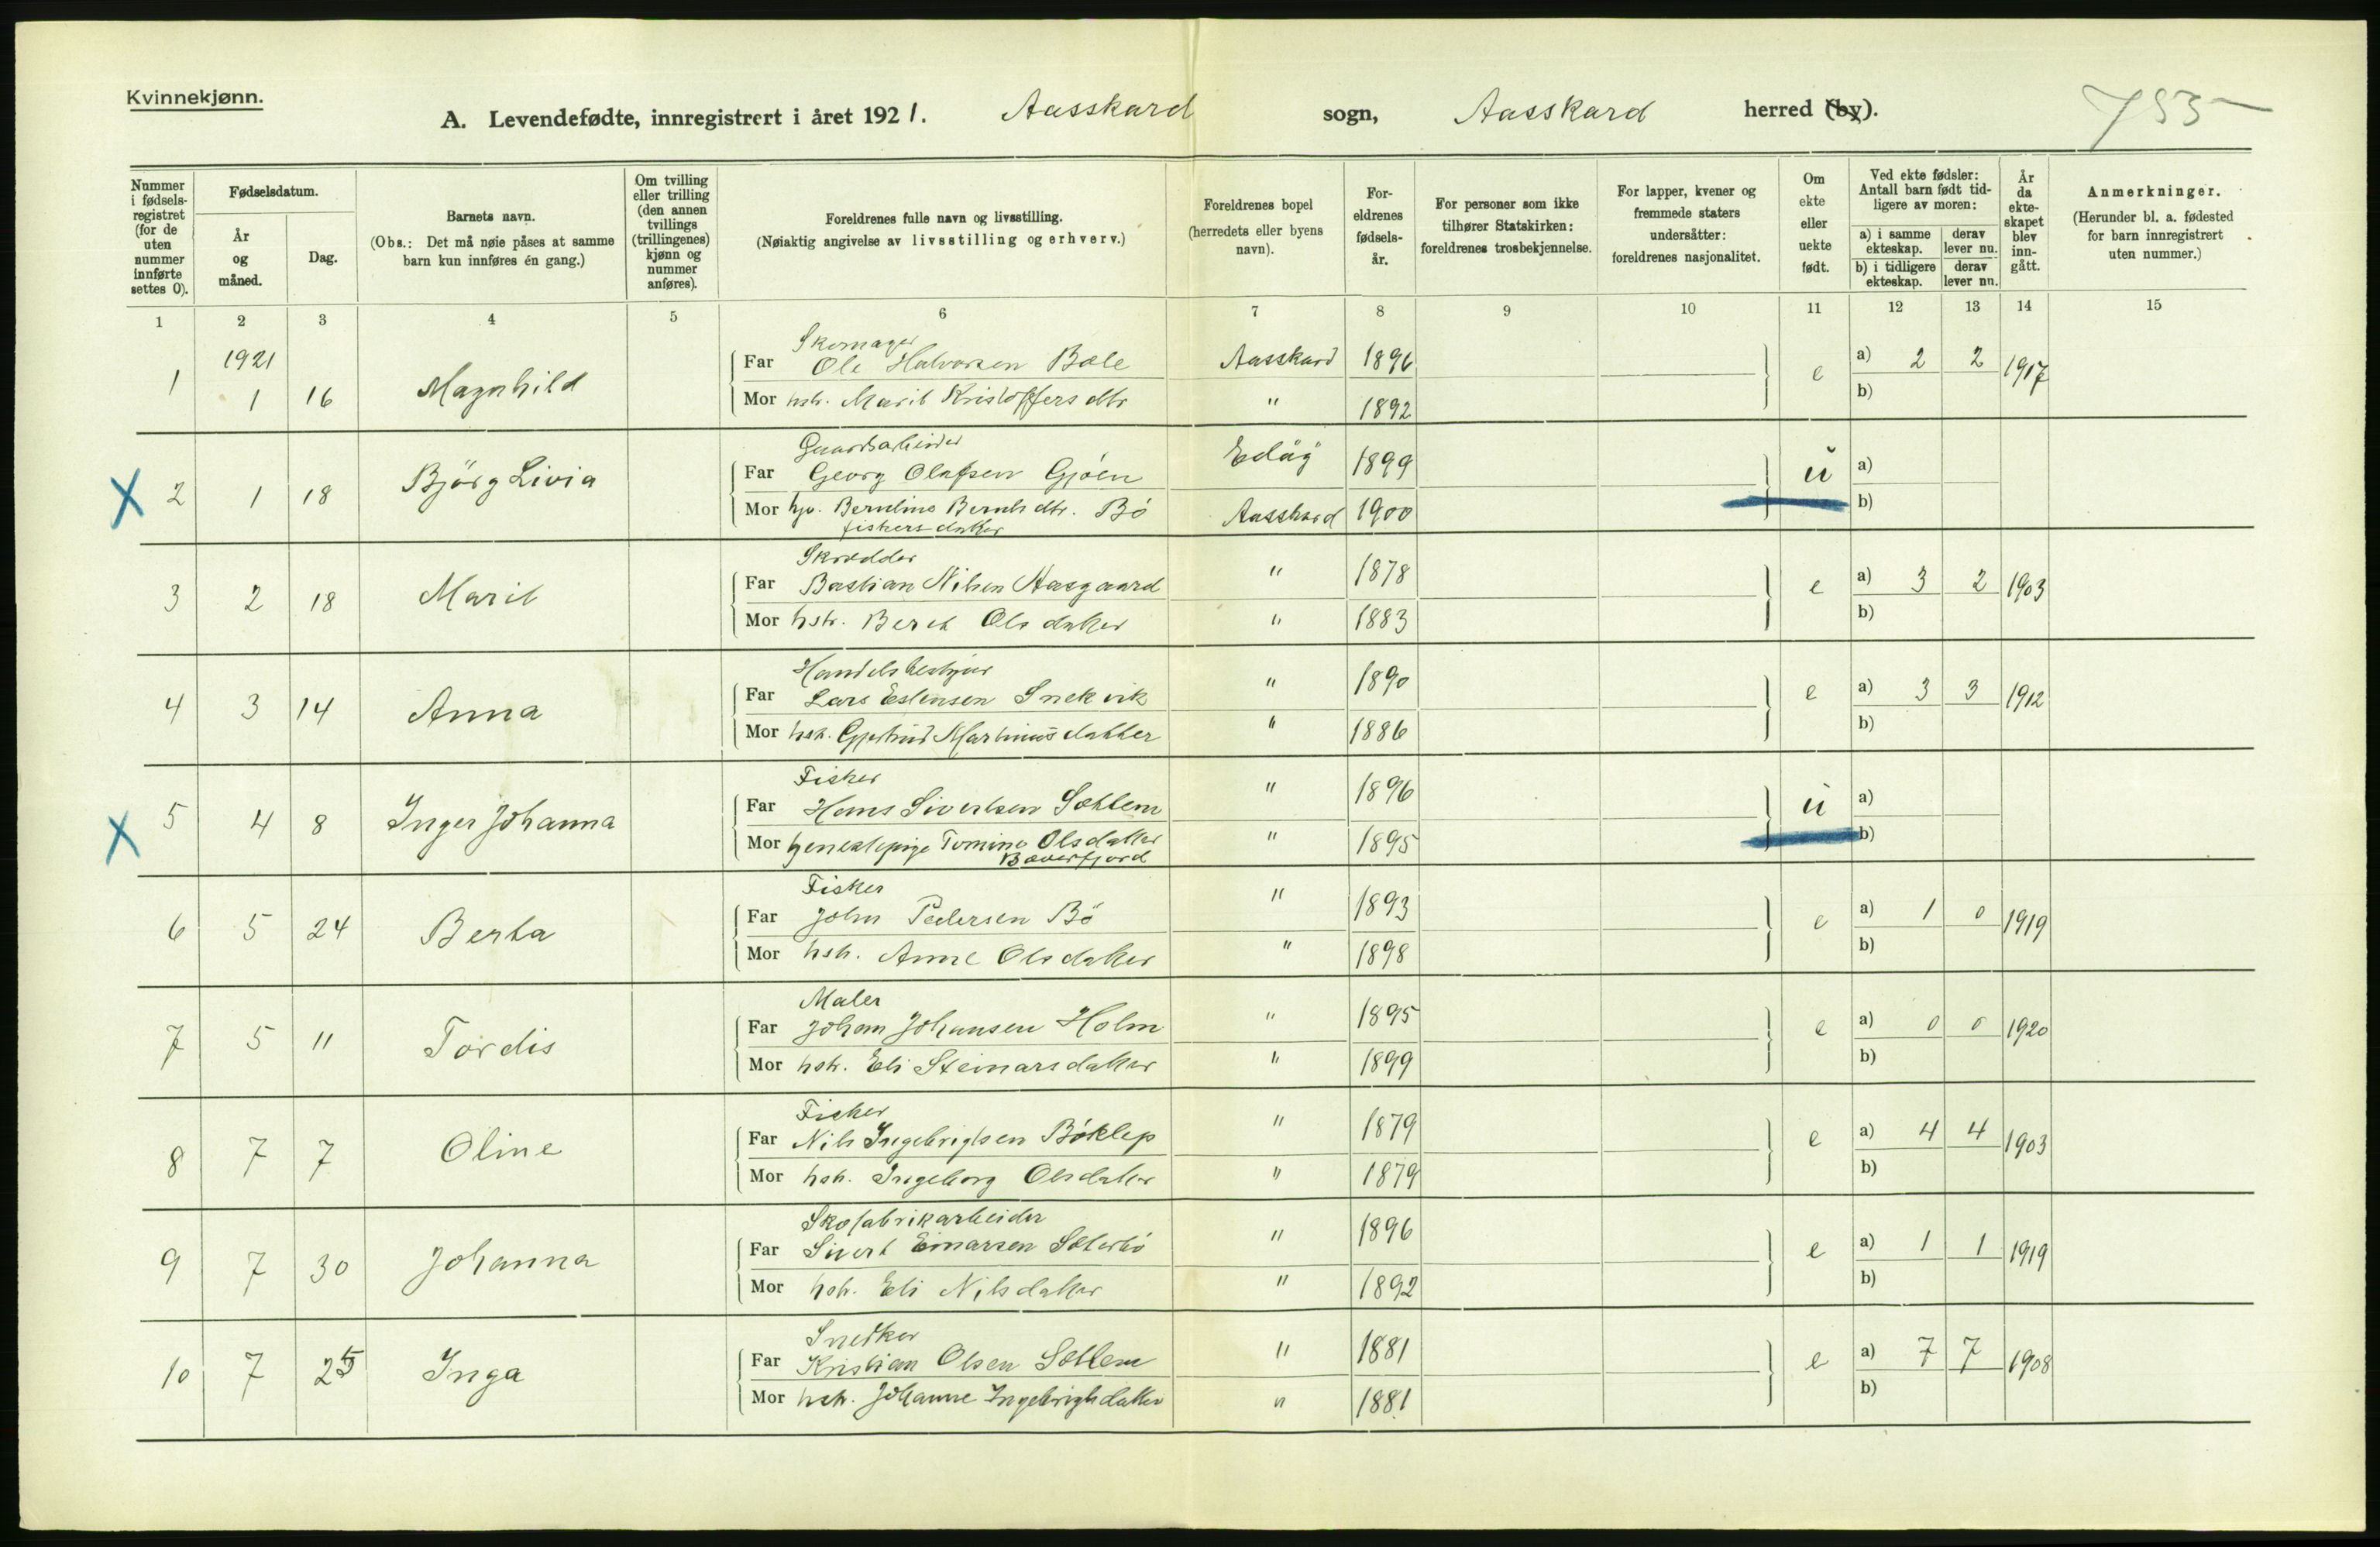 Kvinnekjønn.
A. Levendefødte, innregistrert i året 1921. Aasskard sogn, Aasskard herred (by). 755
Nummer i fødselsregistret (for de uten nummer innførte settes 0).
Fødselsdatum.
År og måned.
Dag.
Barnets navn.
(Obs.: Det må nøie påses at samme barn kun innføres én gang.)
Om tvilling eller trilling (den annen tvillings (trillingenes) kjønn og nummer anføres).
Foreldrenes fulle navn og livsstilling.
(Nøiaktig angivelse av livsstilling og erhverv.)
Foreldrenes bopel (herredets eller byens navn).
Foreldrenes fødselsår.
For personer som ikke tilhører Statskirken: foreldrenes trosbekjennelse.
For lapper, kvener og fremmede staters undersåtter: foreldrenes nasjonalitet.
Om ekte eller uekte født.
Ved ekte fødsler: Antall barn født tidligere av moren:
a) i samme ekteskap.
derav lever nu.
b) i tidligere ekteskap.
derav lever nu.
År da ekteskapet blev inngått.
Anmerkninger.
(Herunder bl. a. fødested for barn innregistrert uten nummer.)
1 2 3 4 5 6 7 8 9 10 11 12 13 14 15
1921
Skomager
1 1 16 Magnhild Far Ole Halvorsen Bøle Aasskard 1896 e a) 2 2 1917
Mor hstr. Marit Kristoffers dtr " 1892 b)
Gaardsarbeider
X 2 1 18 Bjørg Livia Far Georg Olafsen Gjøen Edøy 1899 u a)
Mor Bernh dtr. Bö Aasskard 1900 b)
fiskers datter
Skrædder
3 2 18 Marit Far Bastian Nilsen Aasgaard " 1878 e a) 3 2 1903
Mor hstr. Beret Ols datter " 1883 b)
Handelsbestyrer
4 3 14 Anna Far Lars Estensen Snekvik " 1890 e a) 3 3 1912
Mor hst. Gjertrud Martinus datter " 1886 b)
Fisker
X 5 4 8 Inger Johanna Far Hans Sivertsen Sættem " 1896 u a)
Mor Tomine Olsdatter " 1895 b)
Bæverfjord
Fisker
6 5 24 Berta Far John Pedersen Bö " 1893 e a) 1 0 1919
Mor hstr. Anne Ols datter " 1898 b)
Maler
7 5 11 Tordis Far Johan Johansen Holm " 1895 e a) 0 0 1920
Mor hstr. Eli Steinarsdatter " 1899 b)
Fisker
8 7 7 Oline Far Nils Ingebrigtsen Böklep " 1879 e a) 4 4 1903
Mor hstr. Ingeborg Olsdatter " 1879 b)
Skofabrikarbeider
9 7 30 Johanna Far Sivert Einarsen Sæterbö " 1896 e a) 1 1 1919
Mor hstr. Eli Nilsdatter " 1892 b)
Snedker
10 7 25 Inga Far Kristian Olsen Sættem " 1881 e a) 7 7 1908
Mor hstr. Johanne Ingebrigtsdatter " 1881 b)